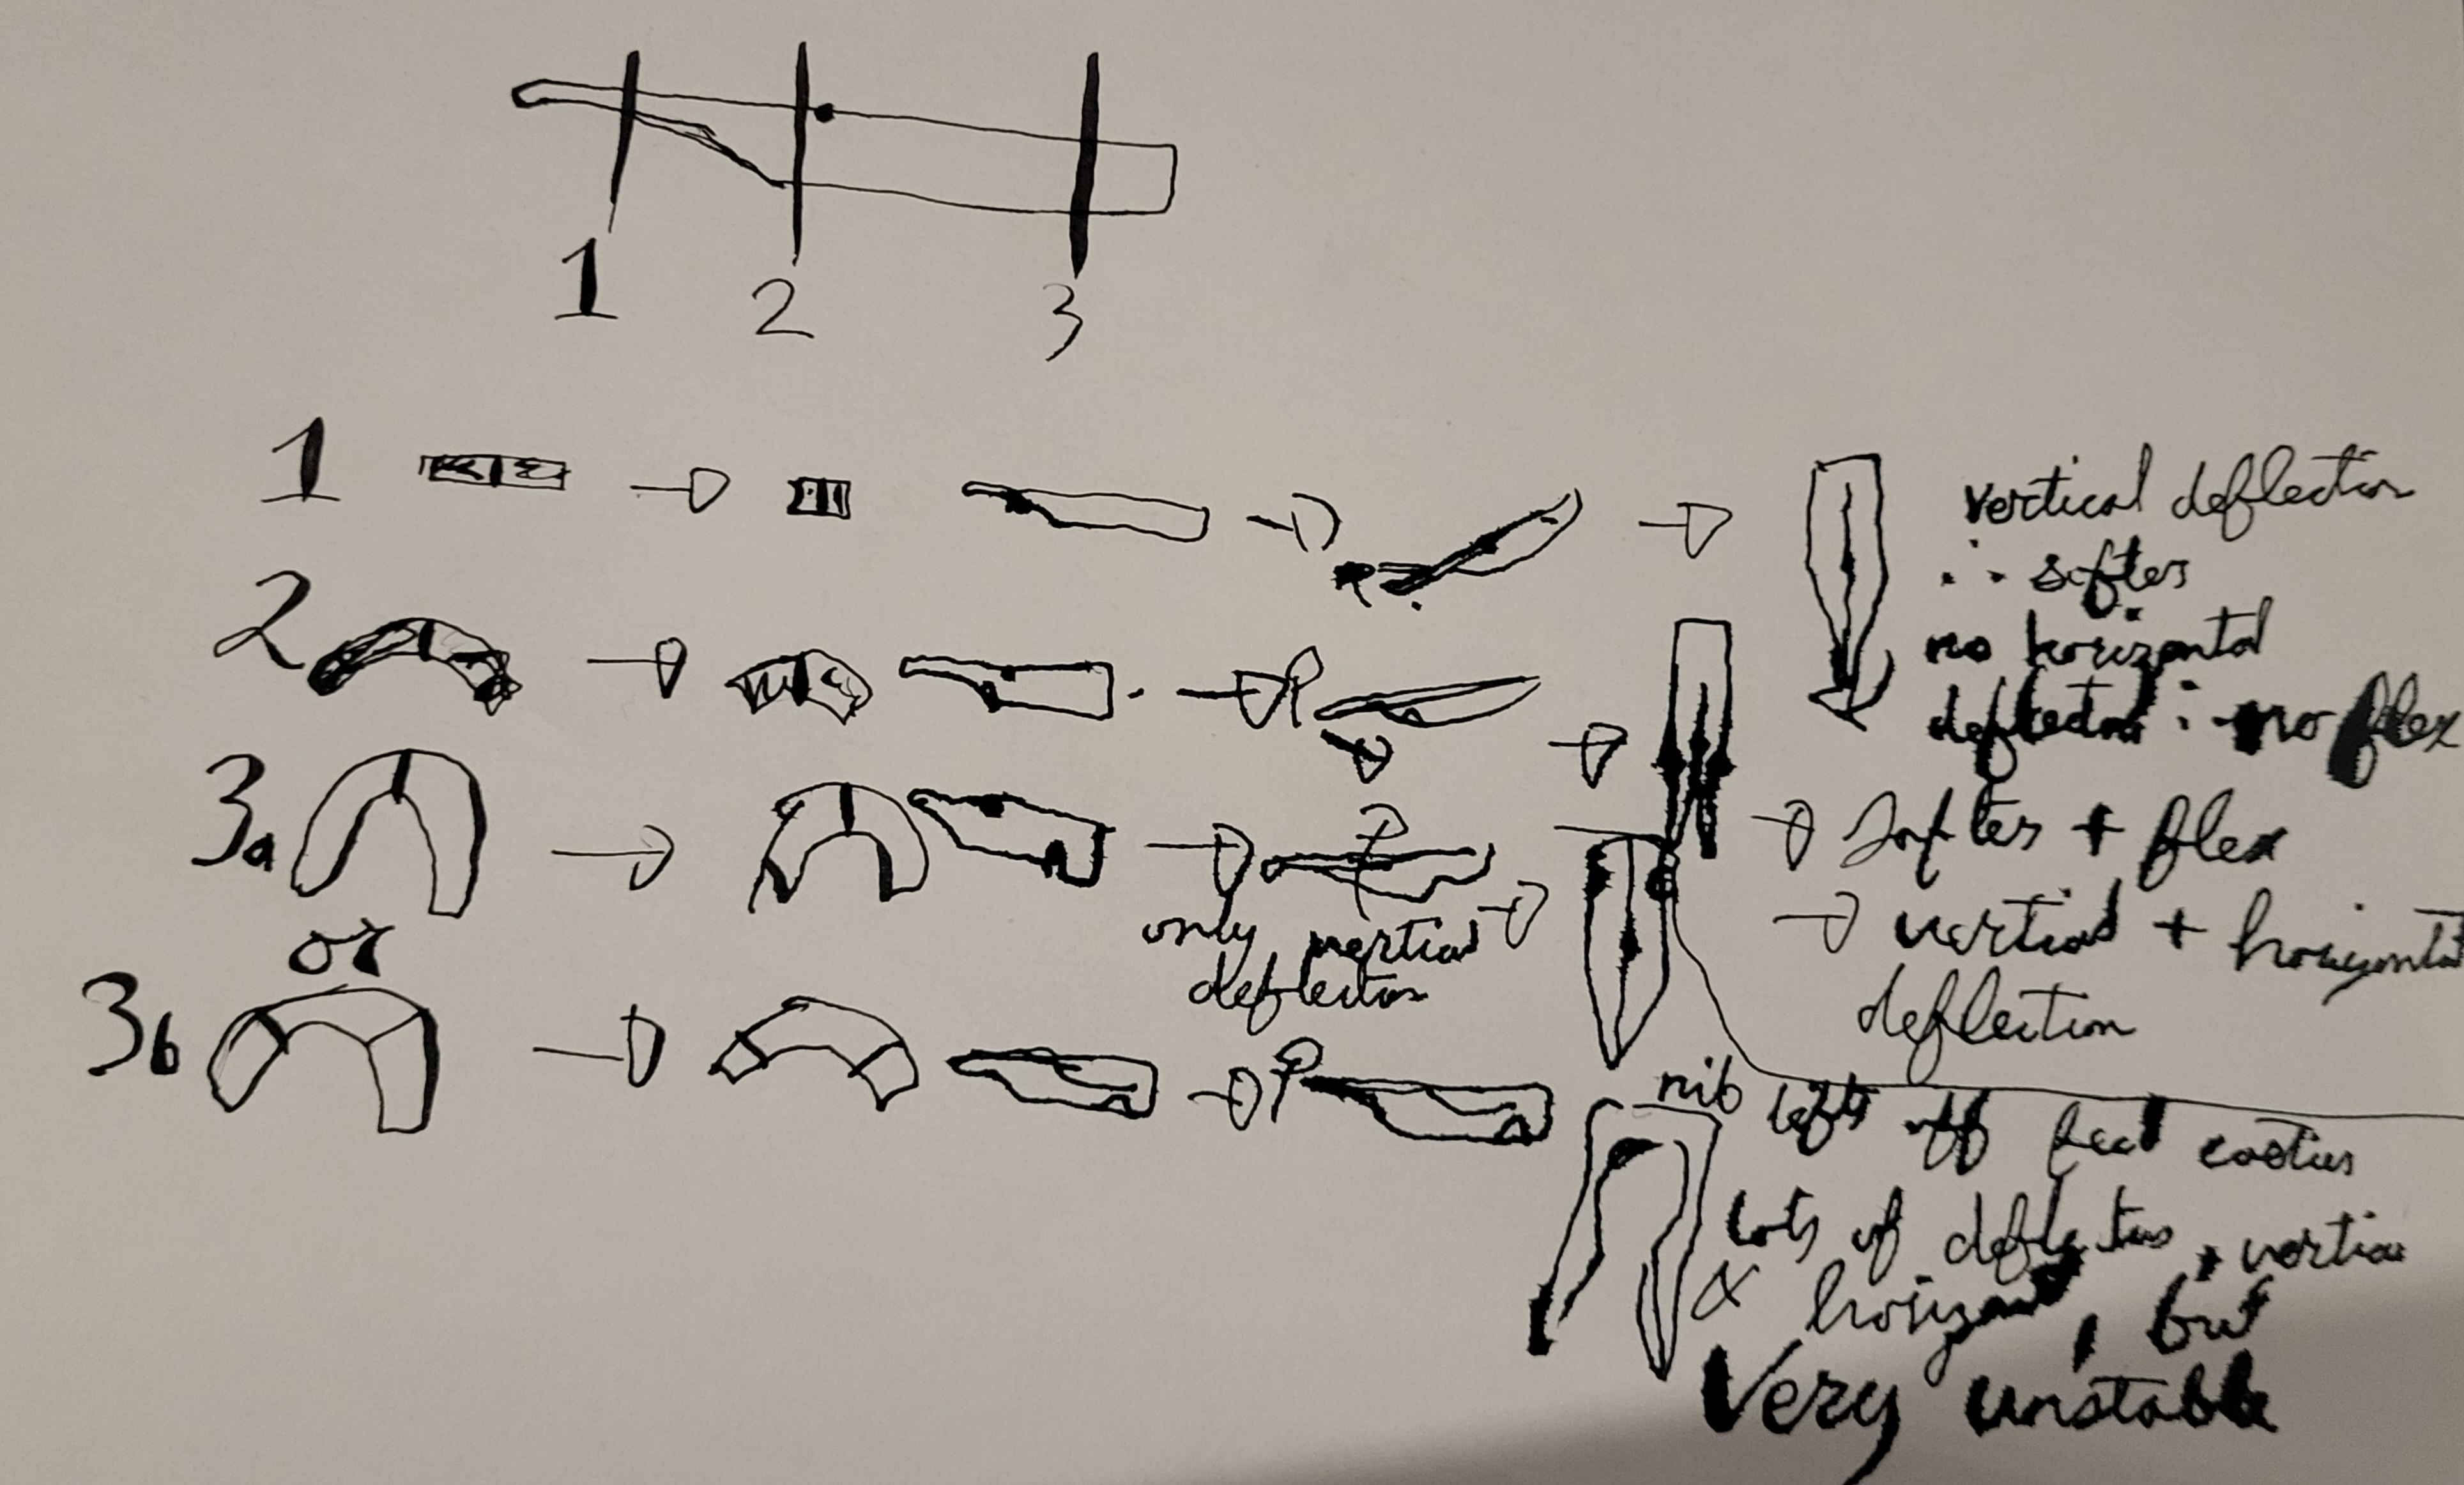 1 2 3
1
vertical deflection
∴ softer
no horizontal
deflection ∴ no flex
2
→ softer + flex
→ vertical + horizontal
deflection
3a
only vertical
deflection
or
3b
nib lifts off feed easties
lots of deflection, vertical
& horizont, but
Very unstable